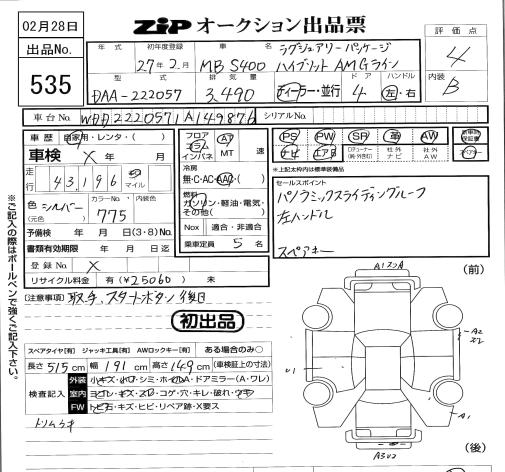 02月28日
ZiP オークション出品票
出品No.
535
評価点
4
内装
B
年式
初年度登録
27年2月
車名
MB S400
ラグジュアリーパッケージ
ハイブリット AMGライン
型式
DAA-222057
排気量
3,490
ディーラー・並行
ドア
4
ハンドル
左・右
車台No.
WDD2220571A149876
シリアルNo.
車歴
自家用・レンタ・( )
車検 × 年 月
走行
43,196
km
マイル
色
(元色)
シルバー
カラーNo.
775
内装色
予備検 年 月 日(3・8)No.
書類有効期限 年 月 日迄
登録No. ×
リサイクル料金 有(¥25060) 未
フロア
コラム
インパネ
AT
MT
速
冷房
無・C・AC・AAC・( )
燃料
ガソリン・軽油・電気・
その他( )
Nox
適合・非適合
乗車定員 5 名
PS
PW
SR
革
AW
ナビ
エアB
社外
ナビ
社外
AW
新車時
保証書
※上記太枠内は標準装備品
セールスポイント
パノラミックスライディングルーフ
左ハンドル
スペアキー
[注意事項] 取説、スタートボタン 後日
初出品
スペアタイヤ[有] ジャッキ工具[有] AWロックキー[有] ある場合のみ○
長さ 515 cm 幅 191 cm 高さ 149 cm (車検証上の寸法)
検査記入
外装
小キズ・小凹・シミ・ホイルA・ドアミラー(A・ワレ)
室内
ヨゴレ・キズ・スレ・コゲ・穴・キレ・破れ・ウキ
FW
トビ石・キズ・ヒビ・リペア跡・X要ス
トリムウキ
※ご記入の際はボールペンで強くご記入下さい。
(前)
A2
U1
A1
A3U2
(後)